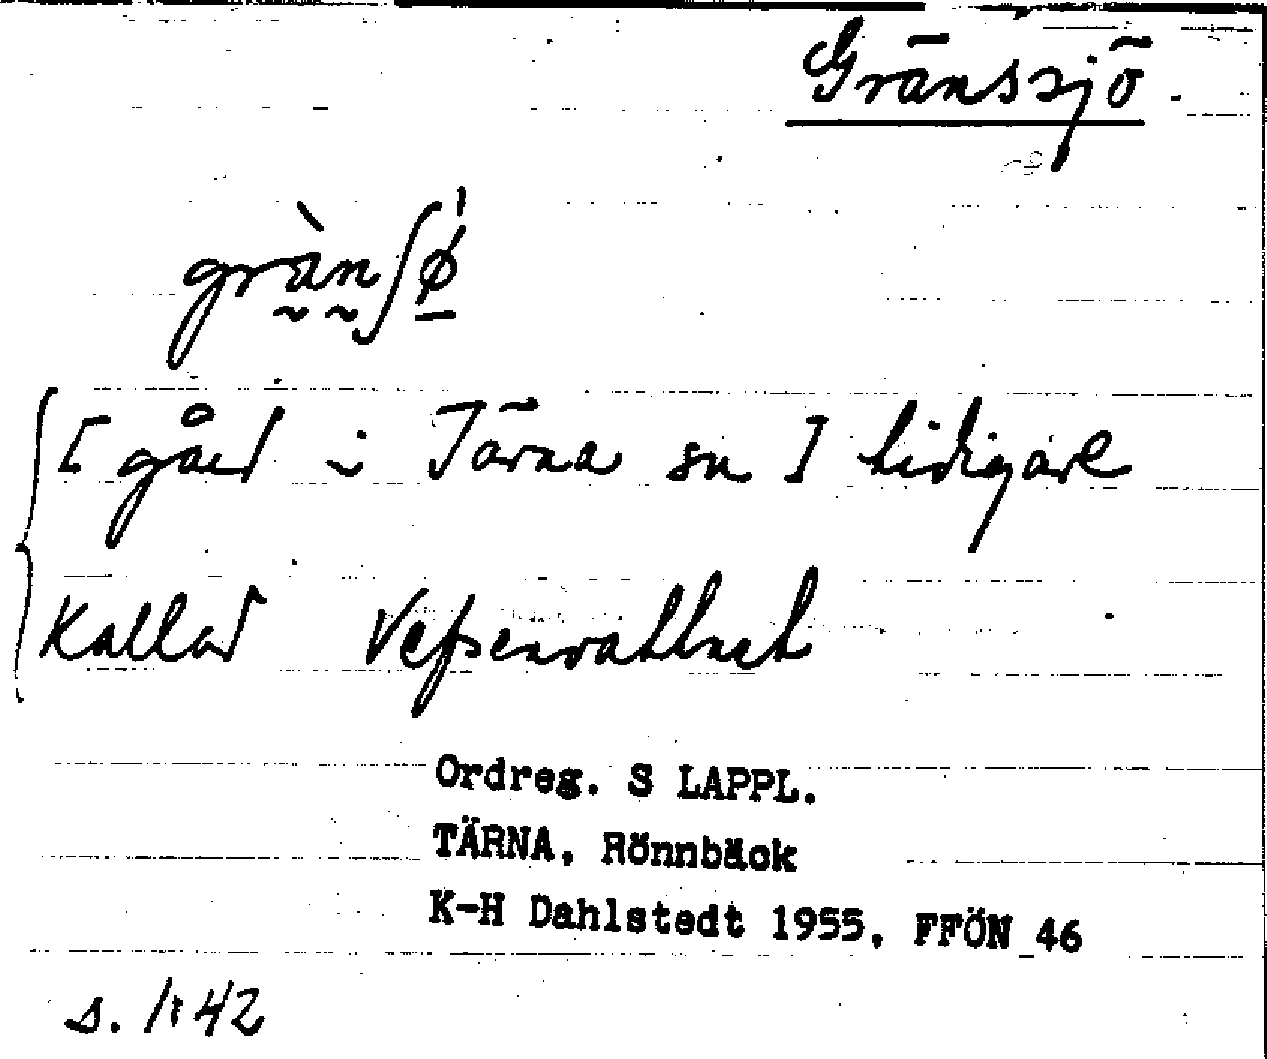 Gränssjö.
grànʃø̀
[gård i Tärna sn] tidigare
kallad Vefsenvattnet
Ordreg. S LAPPL.
TÄRNA, Rönnbäck
K-H Dahlstedt 1955, FFÖN 46
s. 1:42